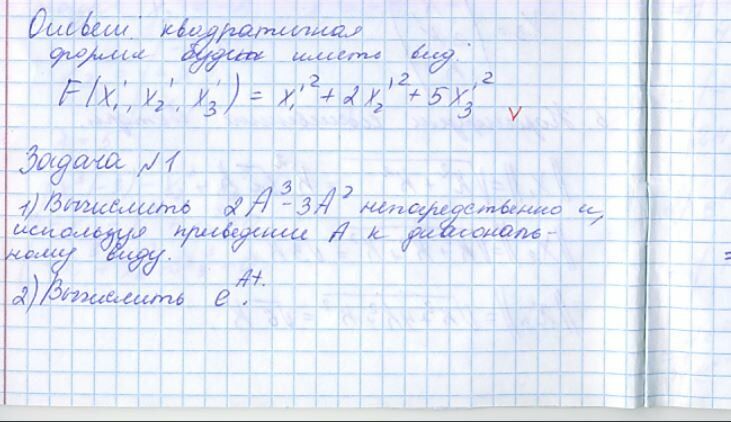 Ответ: квадратичная
форма будет иметь вид:
F(x₁', x₂', x₃') = x₁'² + 2x₂'² + 5x₃'²
Задача №1
1) Вычислить 2A³ - 3A² непосредственно и,
используя приведение A к диагональ-
ному виду.
2) Вычислить e^{At}.